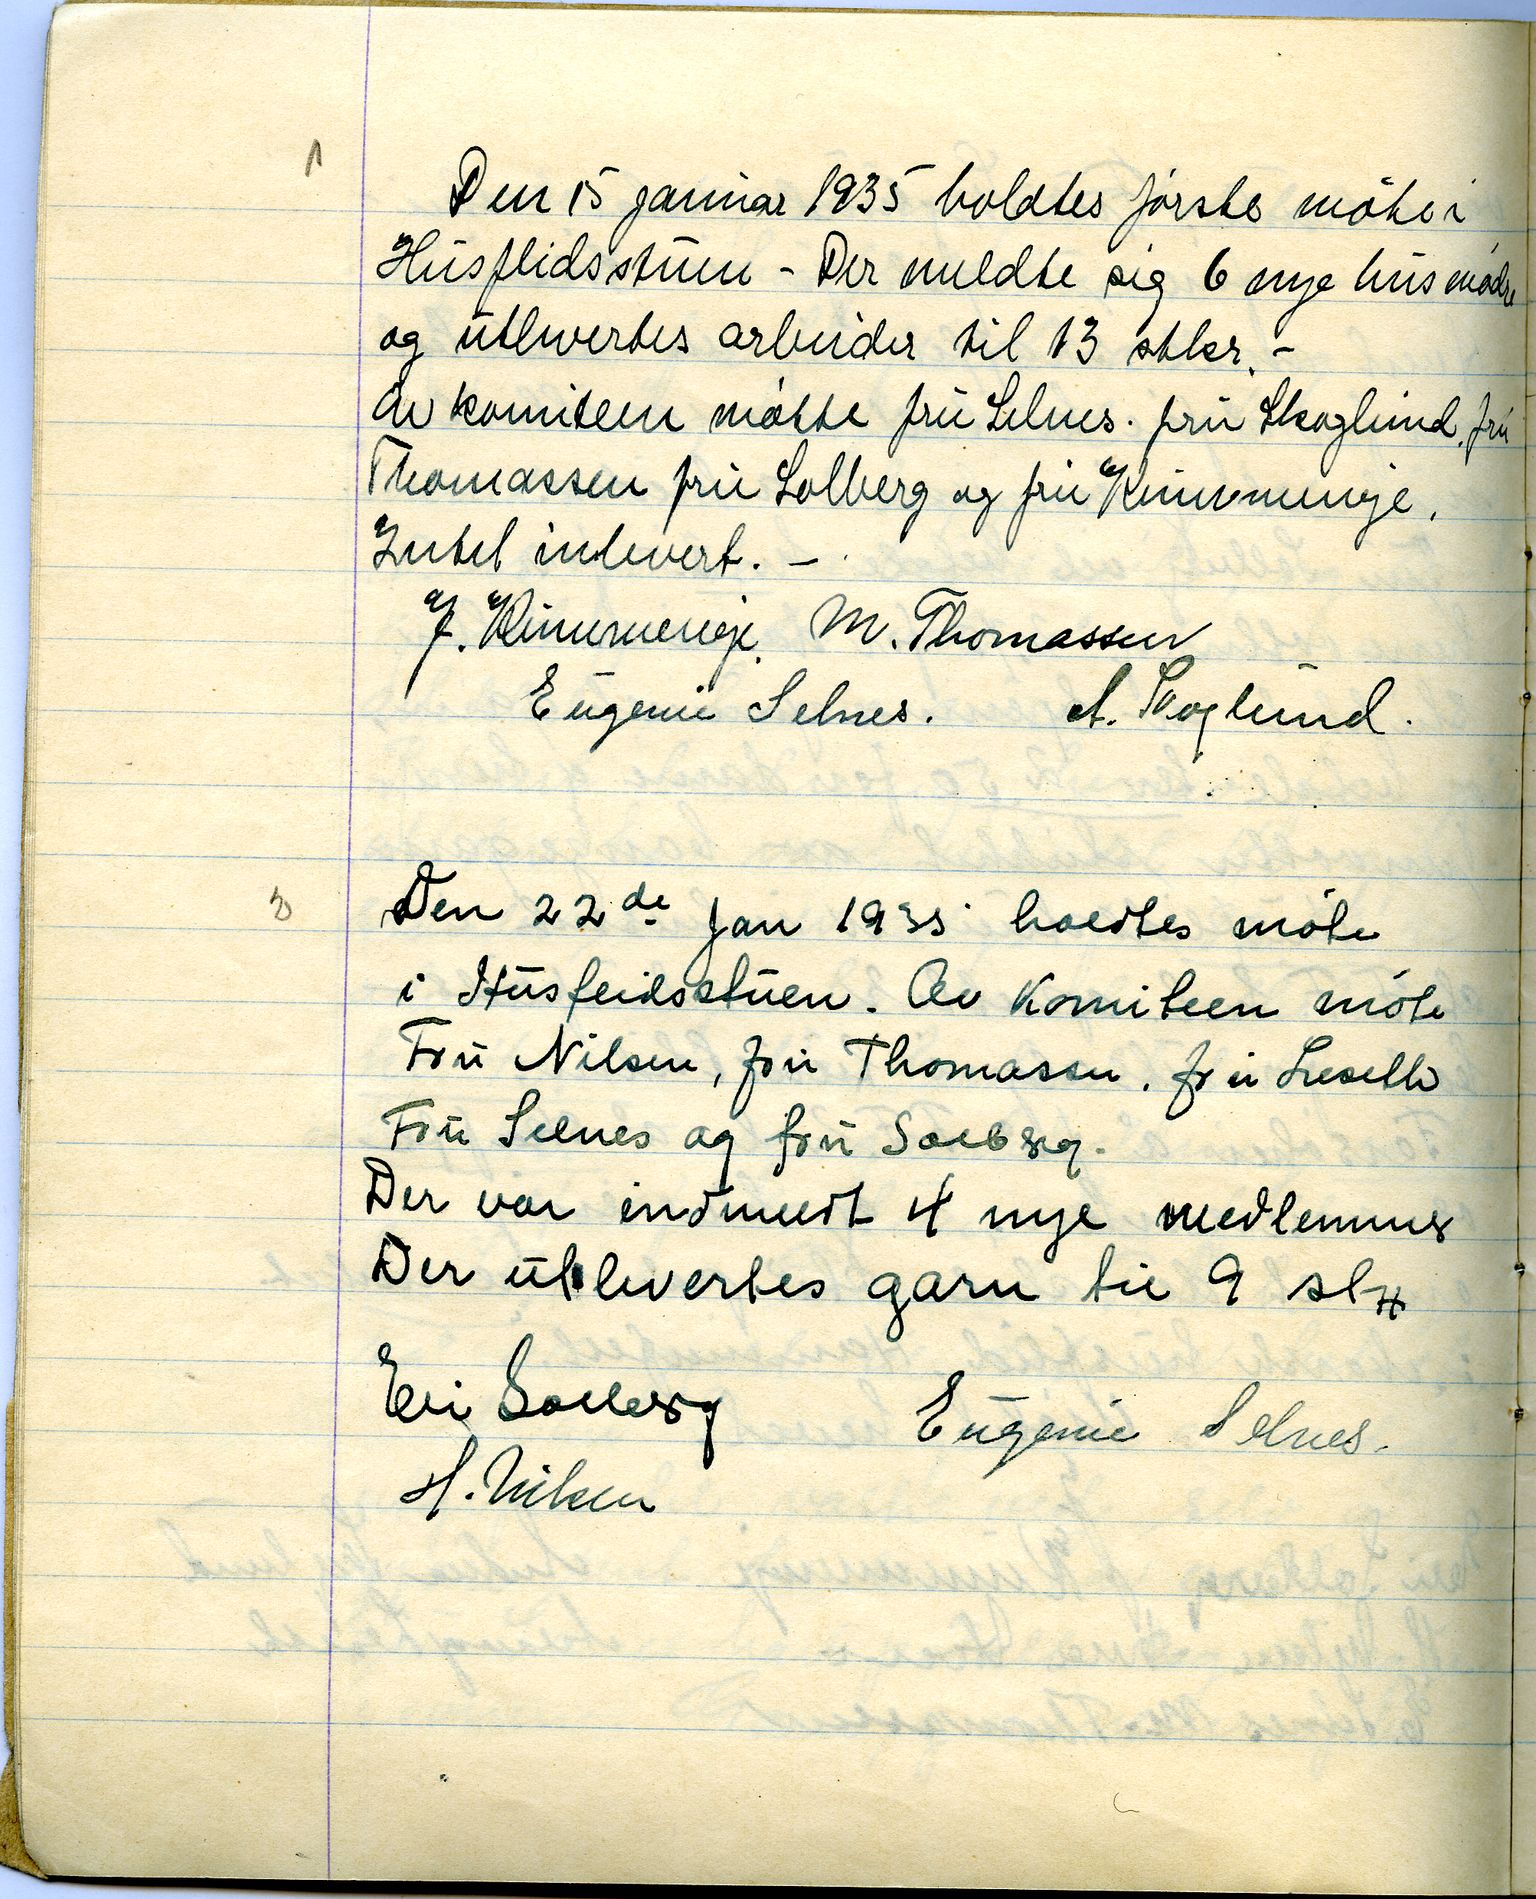 1
Den 15 januar 1935 holdtes første møte i
Husflidsstuen - Der meldte sig 6 nye husmødre
og utlevertes arbeider til 13 stkr. -
Av komiteen møtte fru Selnes. fru Skoglund. fru
Thomassen fru Solberg og fru Kimmernæje.
Intet inlevert. -
J. M. Thomassen
Eugenie Selnes. A. Skoglund.
2
Den 22de Jan 1935 holdtes møte
i Husflidsstuen. Av Komiteen møte
Fru Nilsen, fru Thomassen. fru
Fru Selnes og fru Solberg.
Der var indmeldt 4 nye medlemmer
Der utlevertes garn til 9 stk
Elli Solberg Eugenie Selnes.
H. Nilsen